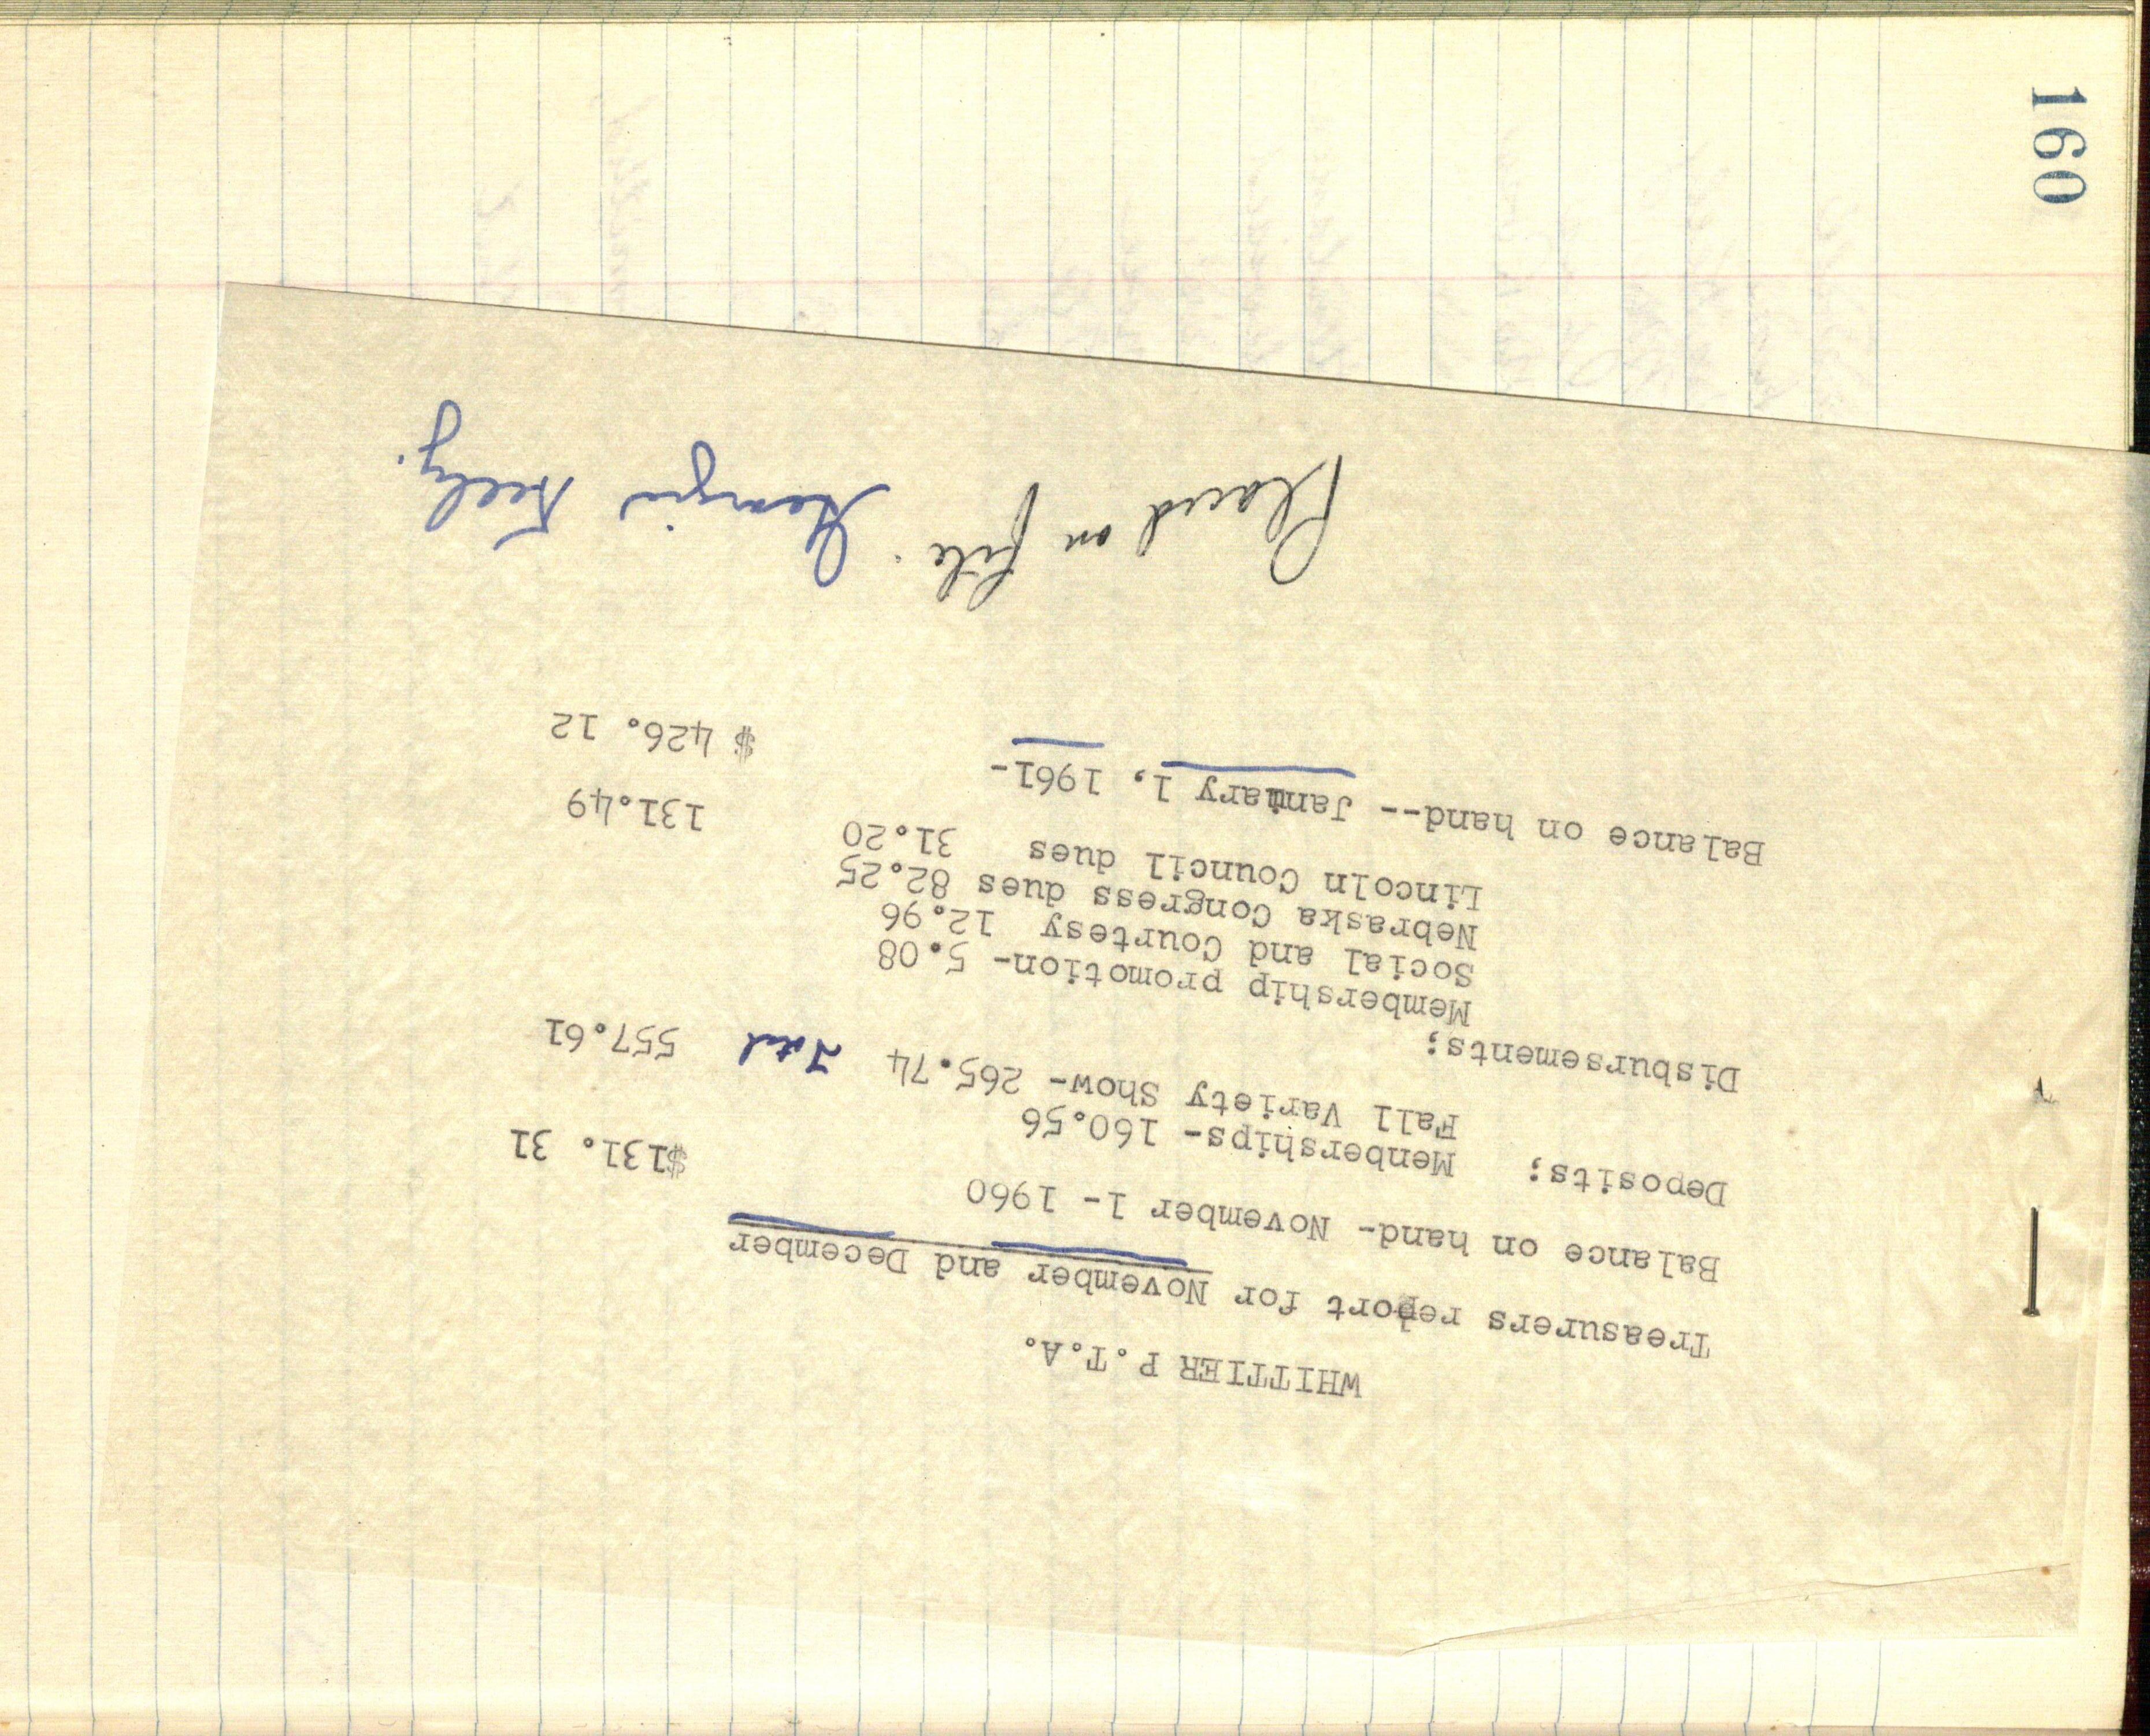 160
WHITTIER P.T.A.
Treasurers report for November and December
Balance on hand- November 1- 1960 $131. 31
Deposits; Memberships- 160.56
Fall Variety Show- 265.74 Total 557.61
Disbursements;
Membership promotion- 5.08
Social and Courtesy 12.96
Nebraska Congress dues 82.25
Lincoln Council dues 31.20 131.49
Balance on hand-- January 1, 1961- $ 426. 12
Placed on file. Georgia